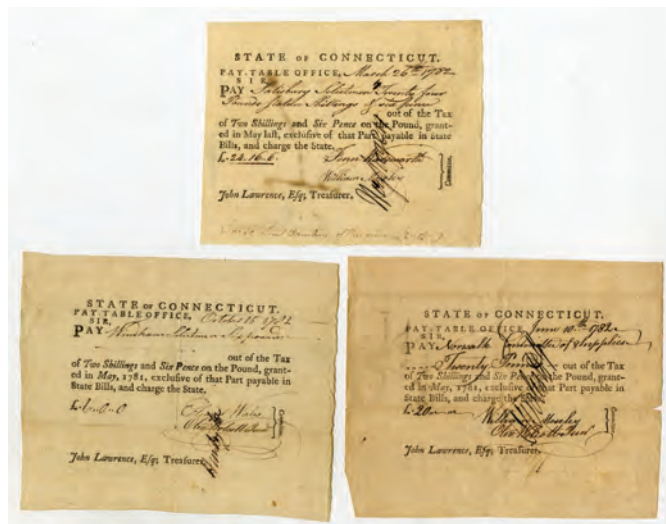 STATE OF CONNECTICUT.
PAY-TABLE OFFICE, March 26th 1782
SIR,
PAY Salisbury Selectmen Twenty four
Pounds sixteen Shillings & six pence
out of the Tax
of Two Shillings and Six Pence on the Pound, grant-
ed in May last, exclusive of that Part payable in State
Bills, and charge the State.
£ 24.16.6
Fenn Wadsworth
William Mosely
Committee.
John Lawrence, Esq; Treasurer.
STATE OF CONNECTICUT.
PAY-TABLE OFFICE, October 15 1782
SIR,
PAY Windham Selectmen Six pounds
out of the Tax
of Two Shillings and Six Pence on the Pound, grant-
ed in May, 1781, exclusive of that Part payable in
State Bills, and charge the State.
£ 6-0-0
Wales
Committee.
John Lawrence, Esq; Treasurer.
STATE OF CONNECTICUT.
PAY-TABLE OFFICE, June 10th 1782
SIR,
PAY Norwalk of Supplies
Twenty Pounds out of the Tax
of Two Shillings and Six Pence on the Pound, grant-
ed in May, 1781, exclusive of that Part payable in
State Bills, and charge the State.
£ 20
William Mosely
Committee.
John Lawrence, Esq; Treasurer.